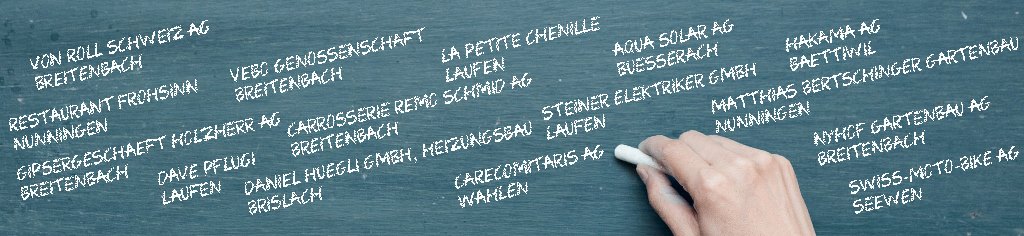 VON ROLL SCHWEIZ AG
BREITENBACH
VEBO GENOSSENSCHAFT
BREITENBACH
LA PETITE CHENILLE
LAUFEN
AQUA SOLAR AG
BUESSERACH
HAKAMA AG
BAETTIWIL
RESTAURANT FROHSINN
NUNNINGEN
CARROSSERIE REMO SCHMID AG
BREITENBACH
STEINER ELEKTRIKER GMBH
LAUFEN
MATTHIAS BERTSCHINGER GARTENBAU
NUNNINGEN
GIPSERGESCHAEFT HOLZHERR AG
BREITENBACH
DAVE PFLUGI
LAUFEN
DANIEL HUEGLI GMBH, HEIZUNGSBAU
BRISLACH
CARECOMITARIS AG
WAHLEN
NYHOF GARTENBAU AG
BREITENBACH
SWISS-MOTO-BIKE AG
SEEWEN